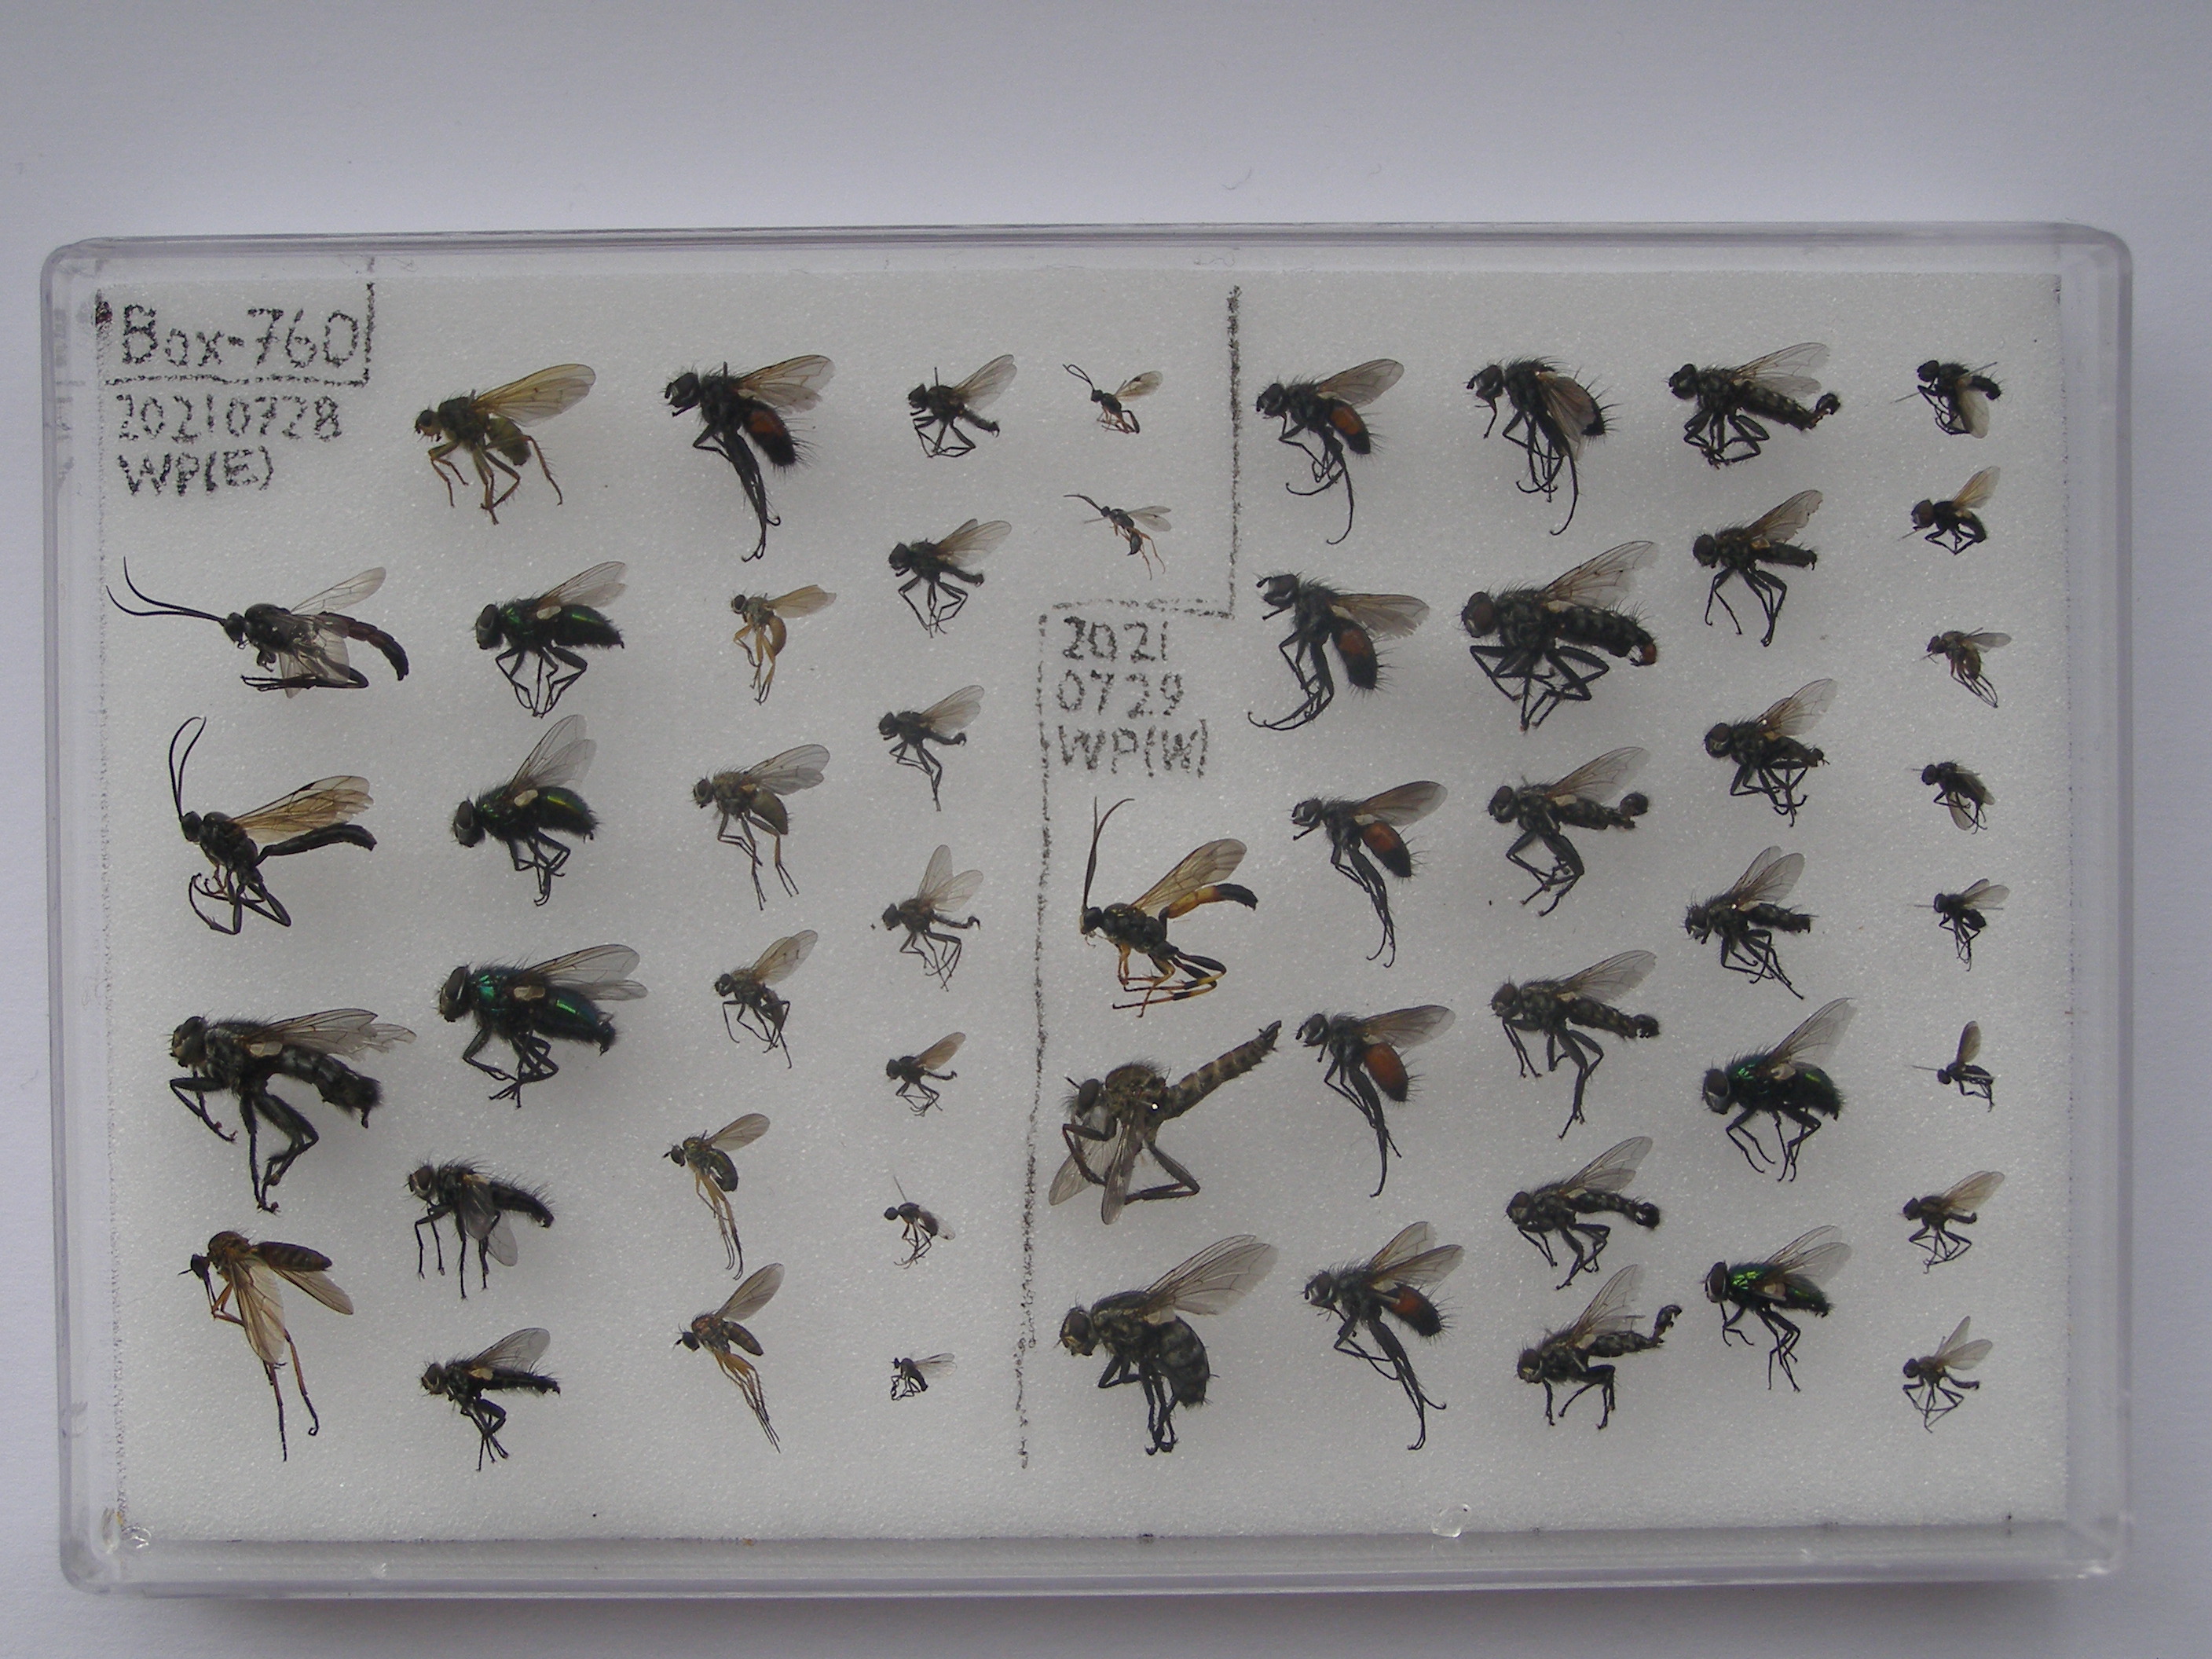 Box-760
20210728
WP(E)
2021
0729
WP(W)